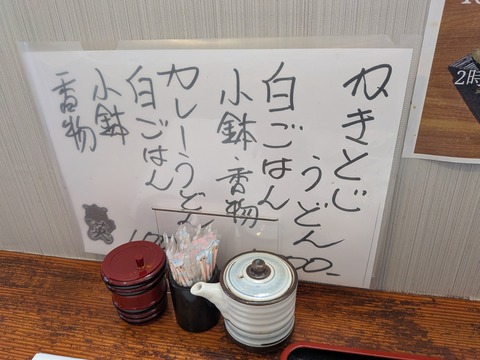 かきとじ
うどん
白ごはん
小鉢・香物
00-
カレーうどん
白ごはん
小鉢
香物
2時